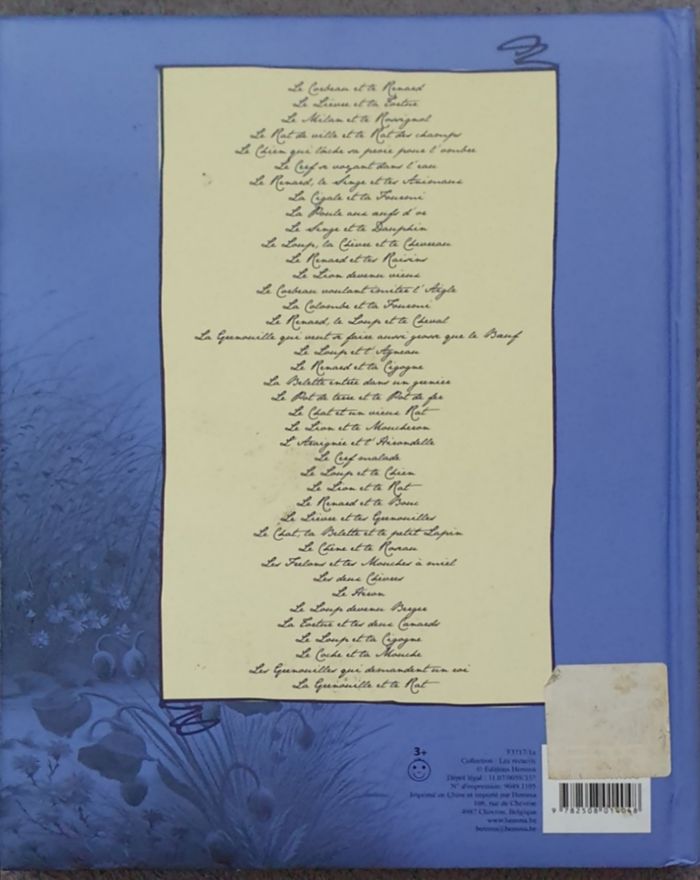 Le Corbeau et le Renard
Le Lièvre et la Tortue
Le Milan et le Rossignol
Le Rat de ville et le Rat des champs
Le Chien qui lâche sa proie pour l'ombre
Le Cerf se voyant dans l'eau
Le Renard, le Singe et les Animaux
La Cigale et la Fourmi
La Poule aux œufs d'or
Le Singe et le Dauphin
Le Loup, la Chèvre et le Chevreau
Le Renard et les Raisins
Le Lion devenu vieux
Le Corbeau voulant imiter l'Aigle
La Colombe et la Fourmi
Le Renard, le Loup et le Cheval
La Grenouille qui veut se faire aussi grosse que le Bœuf
Le Loup et l'Agneau
Le Renard et la Cigogne
La Belette entrée dans un grenier
Le Pot de terre et le Pot de fer
Le Chat et un vieux Rat
Le Lion et le Moucheron
L'Araignée et l'Hirondelle
Le Cerf malade
Le Loup et le Chien
Le Lion et le Rat
Le Renard et le Bouc
Le Lièvre et les Grenouilles
Le Chat, la Belette et le petit Lapin
Le Chêne et le Roseau
Les Frelons et les Mouches à miel
Les deux Chèvres
Le Héron
Le Loup devenu Berger
La Tortue et les deux Canards
Le Loup et la Cigogne
Le Coche et la Mouche
Les Grenouilles qui demandent un roi
La Grenouille et le Rat
3+
Collection : Les recueils
© Editions Hemma
Dépôt légal :
N° d'impression :
Imprimé en Chine et importé par Hemma
106, rue de Chevron
4987 Chevron, Belgique
www.hemma.be
hemma@hemma.be